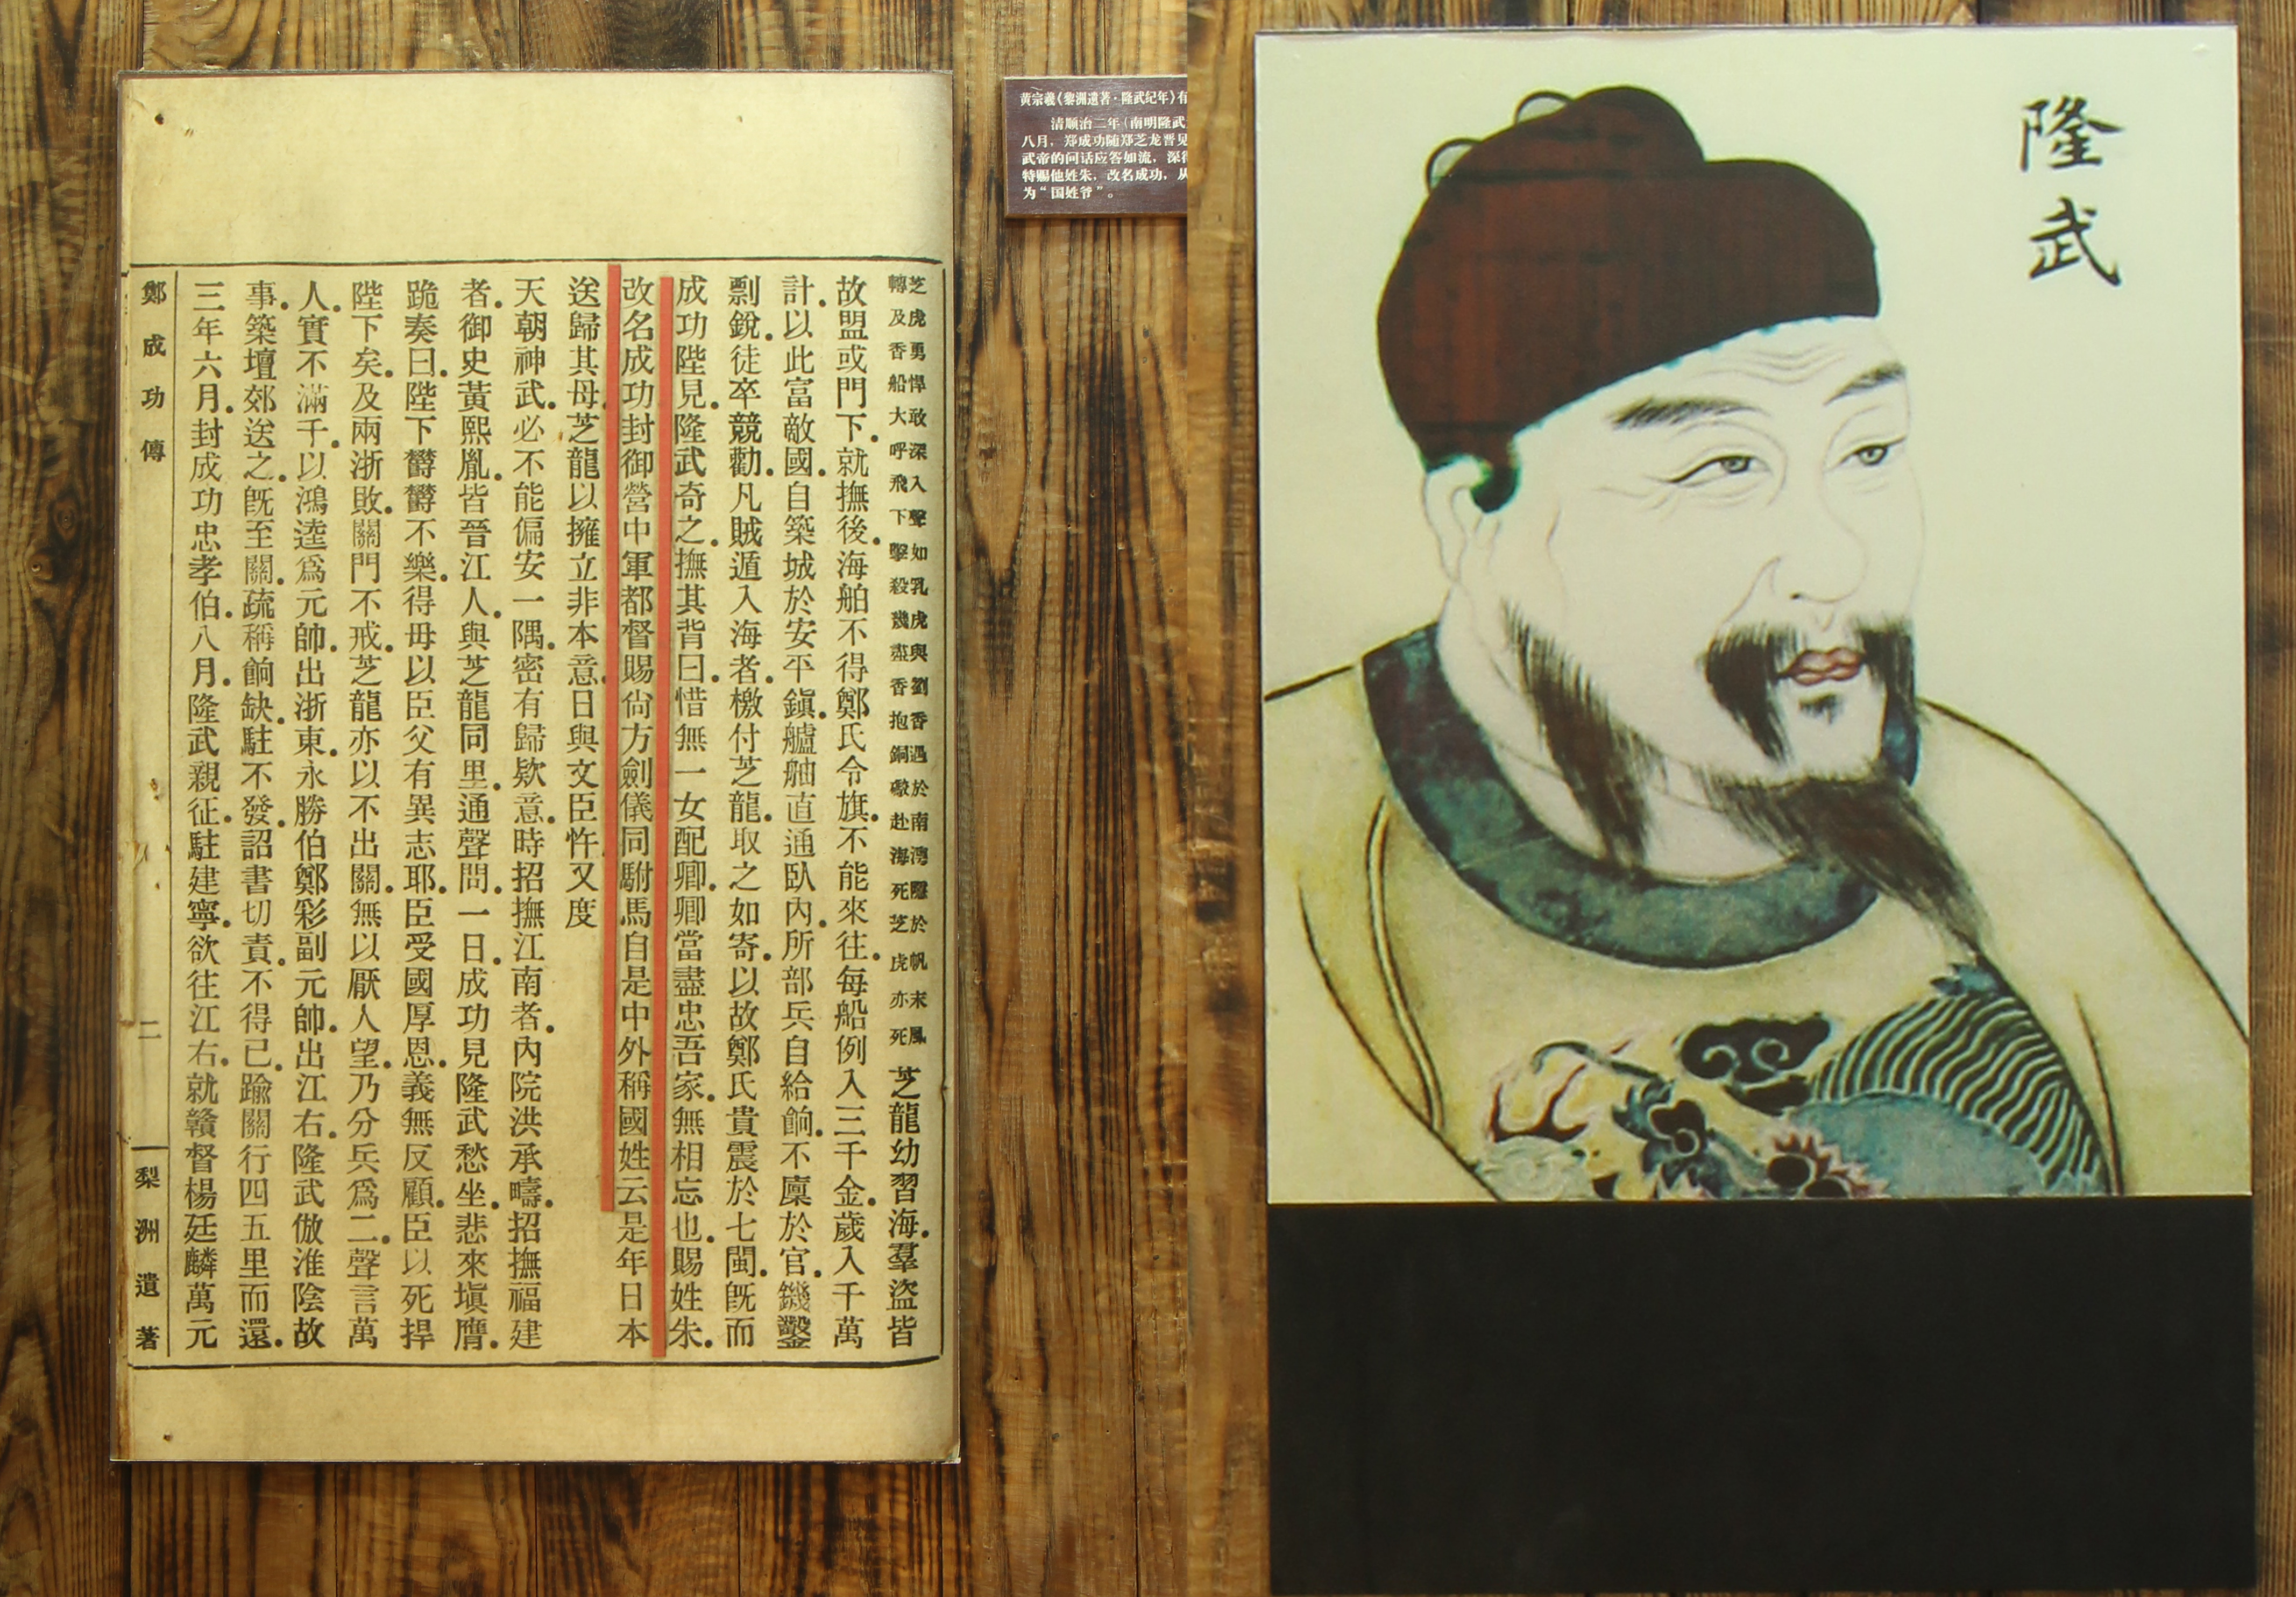 芝虎勇悍敢深入聲如乳虎與劉香遇於南灣隱於帆末風
轉及香船大呼飛下擊殺幾盡香抱銅礮赴海死芝虎亦死
芝龍幼習海羣盜皆
故盟或門下就撫後海舶不得鄭氏令旗不能來往每船例入三千金歲入千萬
計以此富敵國自築城於安平鎮艫舳直通臥內所部兵自給餉不廩於官鐖鑿
剽銳徒卒競勸凡賊遁入海者檄付芝龍取之如寄以故鄭氏貴震於七閩旣而
成功陛見隆武奇之撫其背曰惜無一女配卿卿當盡忠吾家無相忘也賜姓朱
改名成功封御營中軍都督賜尙方劍儀同駙馬自是中外稱國姓云是年日本
送歸其母芝龍以擁立非本意日與文臣忤又度
天朝神武必不能偏安一隅密有歸欵意時招撫江南者內院洪承疇招撫福建
者御史黃熙胤皆晉江人與芝龍同里通聲問一日成功見隆武愁坐悲來塡膺
跪奏曰陛下鬱鬱不樂得毋以臣父有異志耶臣受國厚恩義無反顧臣以死捍
陛下矣及兩浙敗關門不戒芝龍亦以不出關無以厭人望乃分兵爲二聲言萬
人實不滿千以鴻逵爲元帥出浙東永勝伯鄭彩副元帥出江右隆武倣淮陰故
事築壇郊送之旣至關疏稱餉缺駐不發詔書切責不得已踰關行四五里而還
三年六月封成功忠孝伯八月隆武親征駐建寧欲往江右就贛督楊廷麟萬元
鄭成功傳
二
梨洲遺著
黄宗羲《黎洲遗著·隆武纪年》有
清顺治二年（南明隆武
八月，郑成功随郑芝龙晋见
武帝的问话应答如流，深得
特赐他姓朱，改名成功，从
为“国姓爷”。
隆武